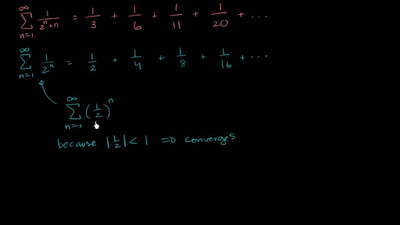 ∞
∑ 1/(2ⁿ+n) = 1/3 + 1/6 + 1/11 + 1/20 + ...
n=1
∞
∑ 1/2ⁿ = 1/2 + 1/4 + 1/8 + 1/16 + ...
n=1
∞
∑ (1/2)ⁿ
n=1
because |1/2| < 1 ⇒ converges